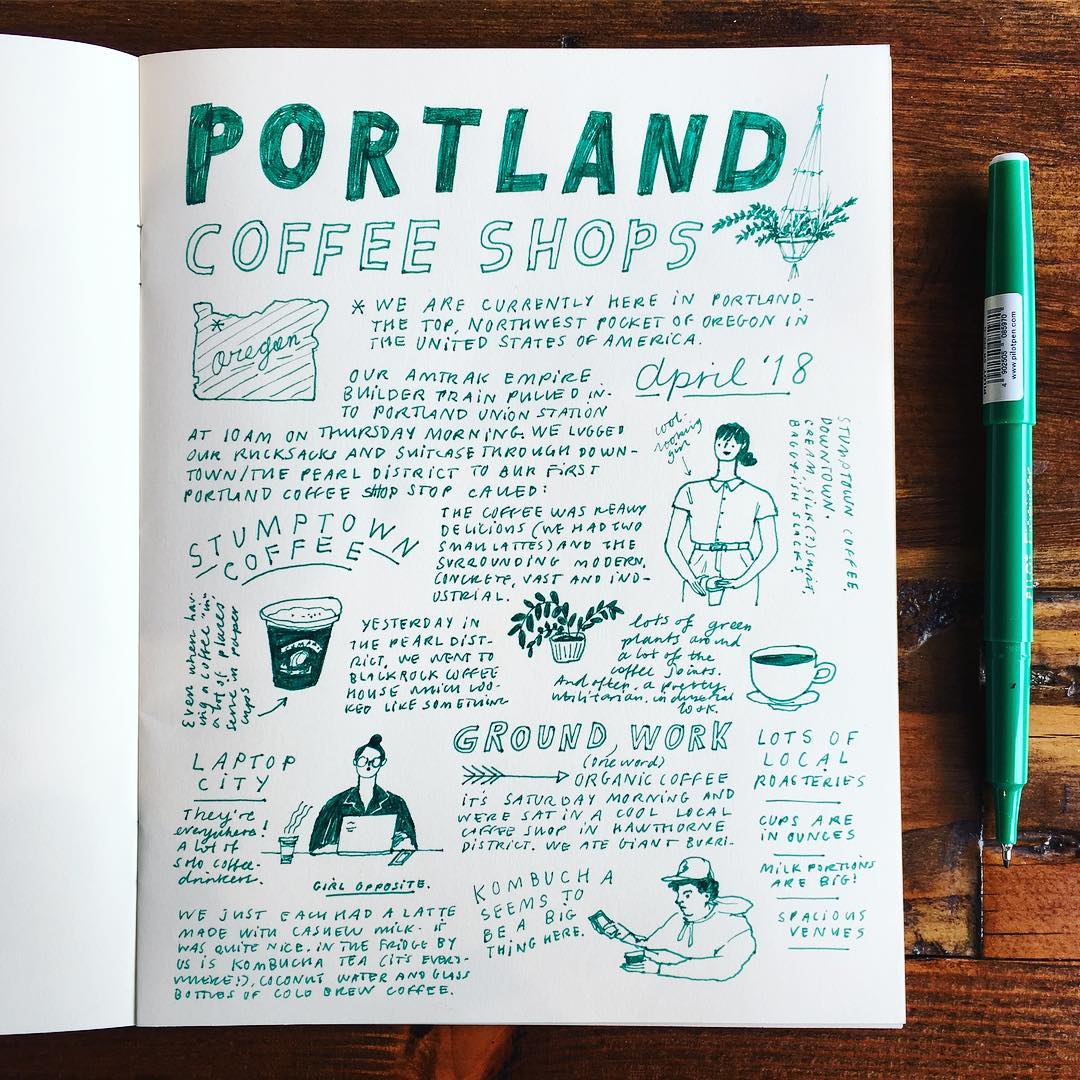 PORTLAND
COFFEE SHOPS
oregon
* WE ARE CURRENTLY HERE IN PORTLAND -
THE TOP, NORTHWEST POCKET OF OREGON IN
THE UNITED STATES OF AMERICA.
april '18
OUR AMTRAK EMPIRE
BUILDER TRAIN PULLED IN-
TO PORTLAND UNION STATION
AT 10AM ON THURSDAY MORNING. WE LUGGED
OUR RUCKSACKS AND SUITCASE THROUGH DOWN-
TOWN/THE PEARL DISTRICT TO OUR FIRST
PORTLAND COFFEE SHOP STOP CALLED:
cool-
looking
girl
STUMPTOWN COFFEE,
DOWNTOWN.
CREAM, SILK(?) SHIRT,
BAGGY-ISH SLACKS.
STUMPTOWN
COFFEE
THE COFFEE WAS REALLY
DELICIOUS (WE HAD TWO
SMALL LATTES) AND THE
SURROUNDING MODERN,
CONCRETE, VAST AND IND-
USTRIAL.
Even when hav-
ing a coffee "in"
a lot of places,
serve in paper
cups
YESTERDAY IN
THE PEARL DIST-
RICT, WE WENT TO
BLACKROCK COFFEE
HOUSE WHICH LOO-
KED LIKE SOMETHING
lots of green
plants around
a lot of the
coffee joints.
And often, a pretty
utilitarian, industrial
look.
LAPTOP
CITY
They're
everywhere!
A lot of
solo coffee-
drinkers.
GIRL OPPOSITE.
GROUND, WORK
(one word)
ORGANIC COFFEE
IT'S SATURDAY MORNING AND
WERE SAT IN A COOL LOCAL
COFFEE SHOP IN HAWTHORNE
DISTRICT. WE ATE GIANT BURRI-
LOTS OF
LOCAL
ROASTERIES
CUPS ARE
IN OUNCES
MILK PORTIONS
ARE BIG!
SPACIOUS
VENUES
KOMBUCHA
SEEMS TO
BE A BIG
THING HERE.
WE JUST EACH HAD A LATTE
MADE WITH CASHEW MILK. IT
WAS QUITE NICE. IN THE FRIDGE BY
US IS KOMBUCHA TEA (IT'S EVERY-
WHERE!), COCONUT WATER AND GLASS
BOTTLES OF COLD BREW COFFEE.
www.pilotpen.com
4 902505 085970